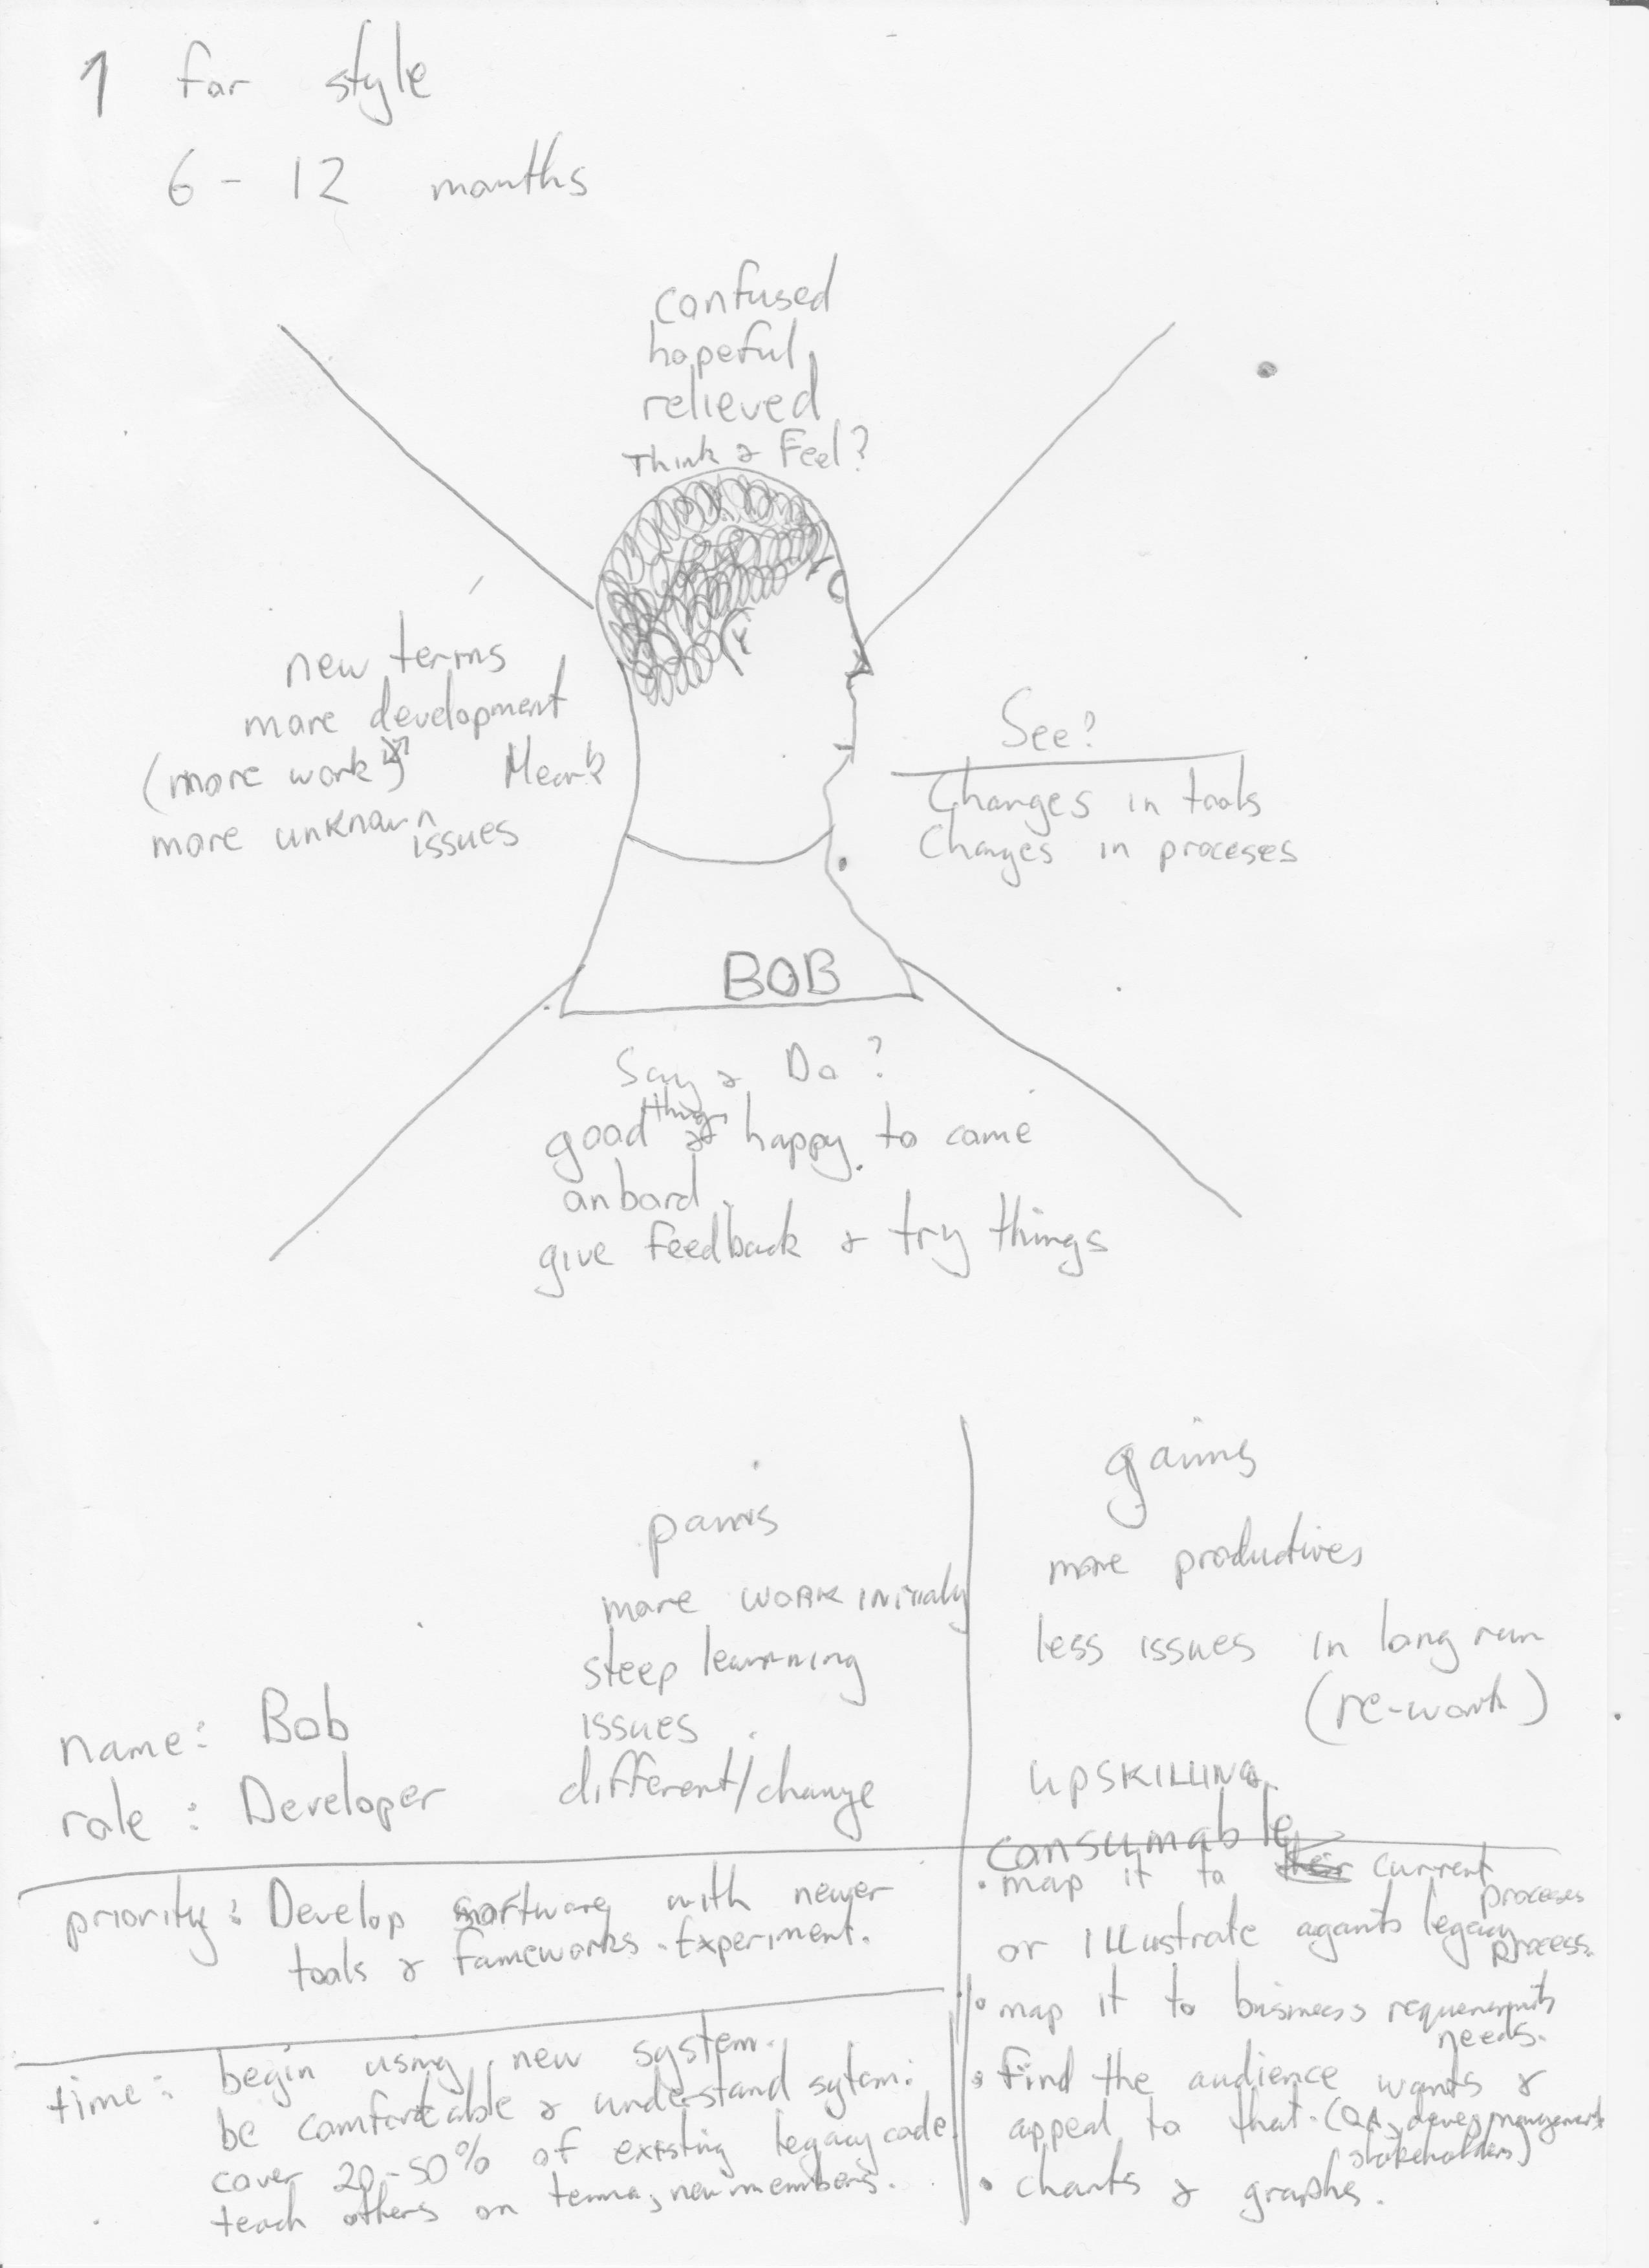 1 for style
6 - 12 months
confused
hopeful
relieved
Think & Feel?
new terms
more development
(more work)
more unknown issues
Hear?
See?
Changes in tools
Changes in proceses
BOB
Say & Do?
good things & happy to come
onbord.
give feedback & try things
pains
more work initialy
steep learning
issues
different/change
gains
more productives
less issues in long run
(re-work)
UPSKILLING
name: Bob
role: Developer
priority: Develop software with newer
tools & fameworks. Experiment.
time: begin using new system.
be comforteable & understand sytem.
cover 20-50% of existing legacy code.
teach others on new members.
consumable
• map it to current proceses
or illustrate agants legacy process.
• map it to business needs.
• Find the audience wants &
appeal to that. (QA, devs, management stakeholders)
• charts & graphs.